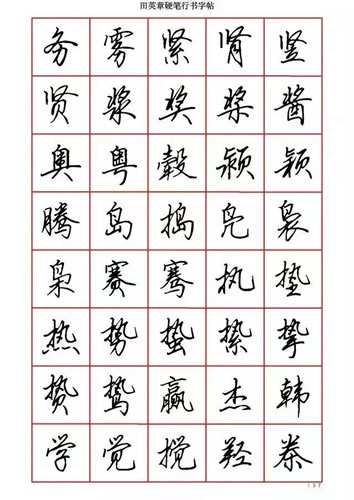 田英章硬笔行书字帖
务雾紧肾竖
贤浆奖桨酱
奥粤毂颍颖
腾岛捣凫袅
枭赛骞执垫
热势蛰絷挚
贽鸷赢杰韩
学觉搅羟拳
187